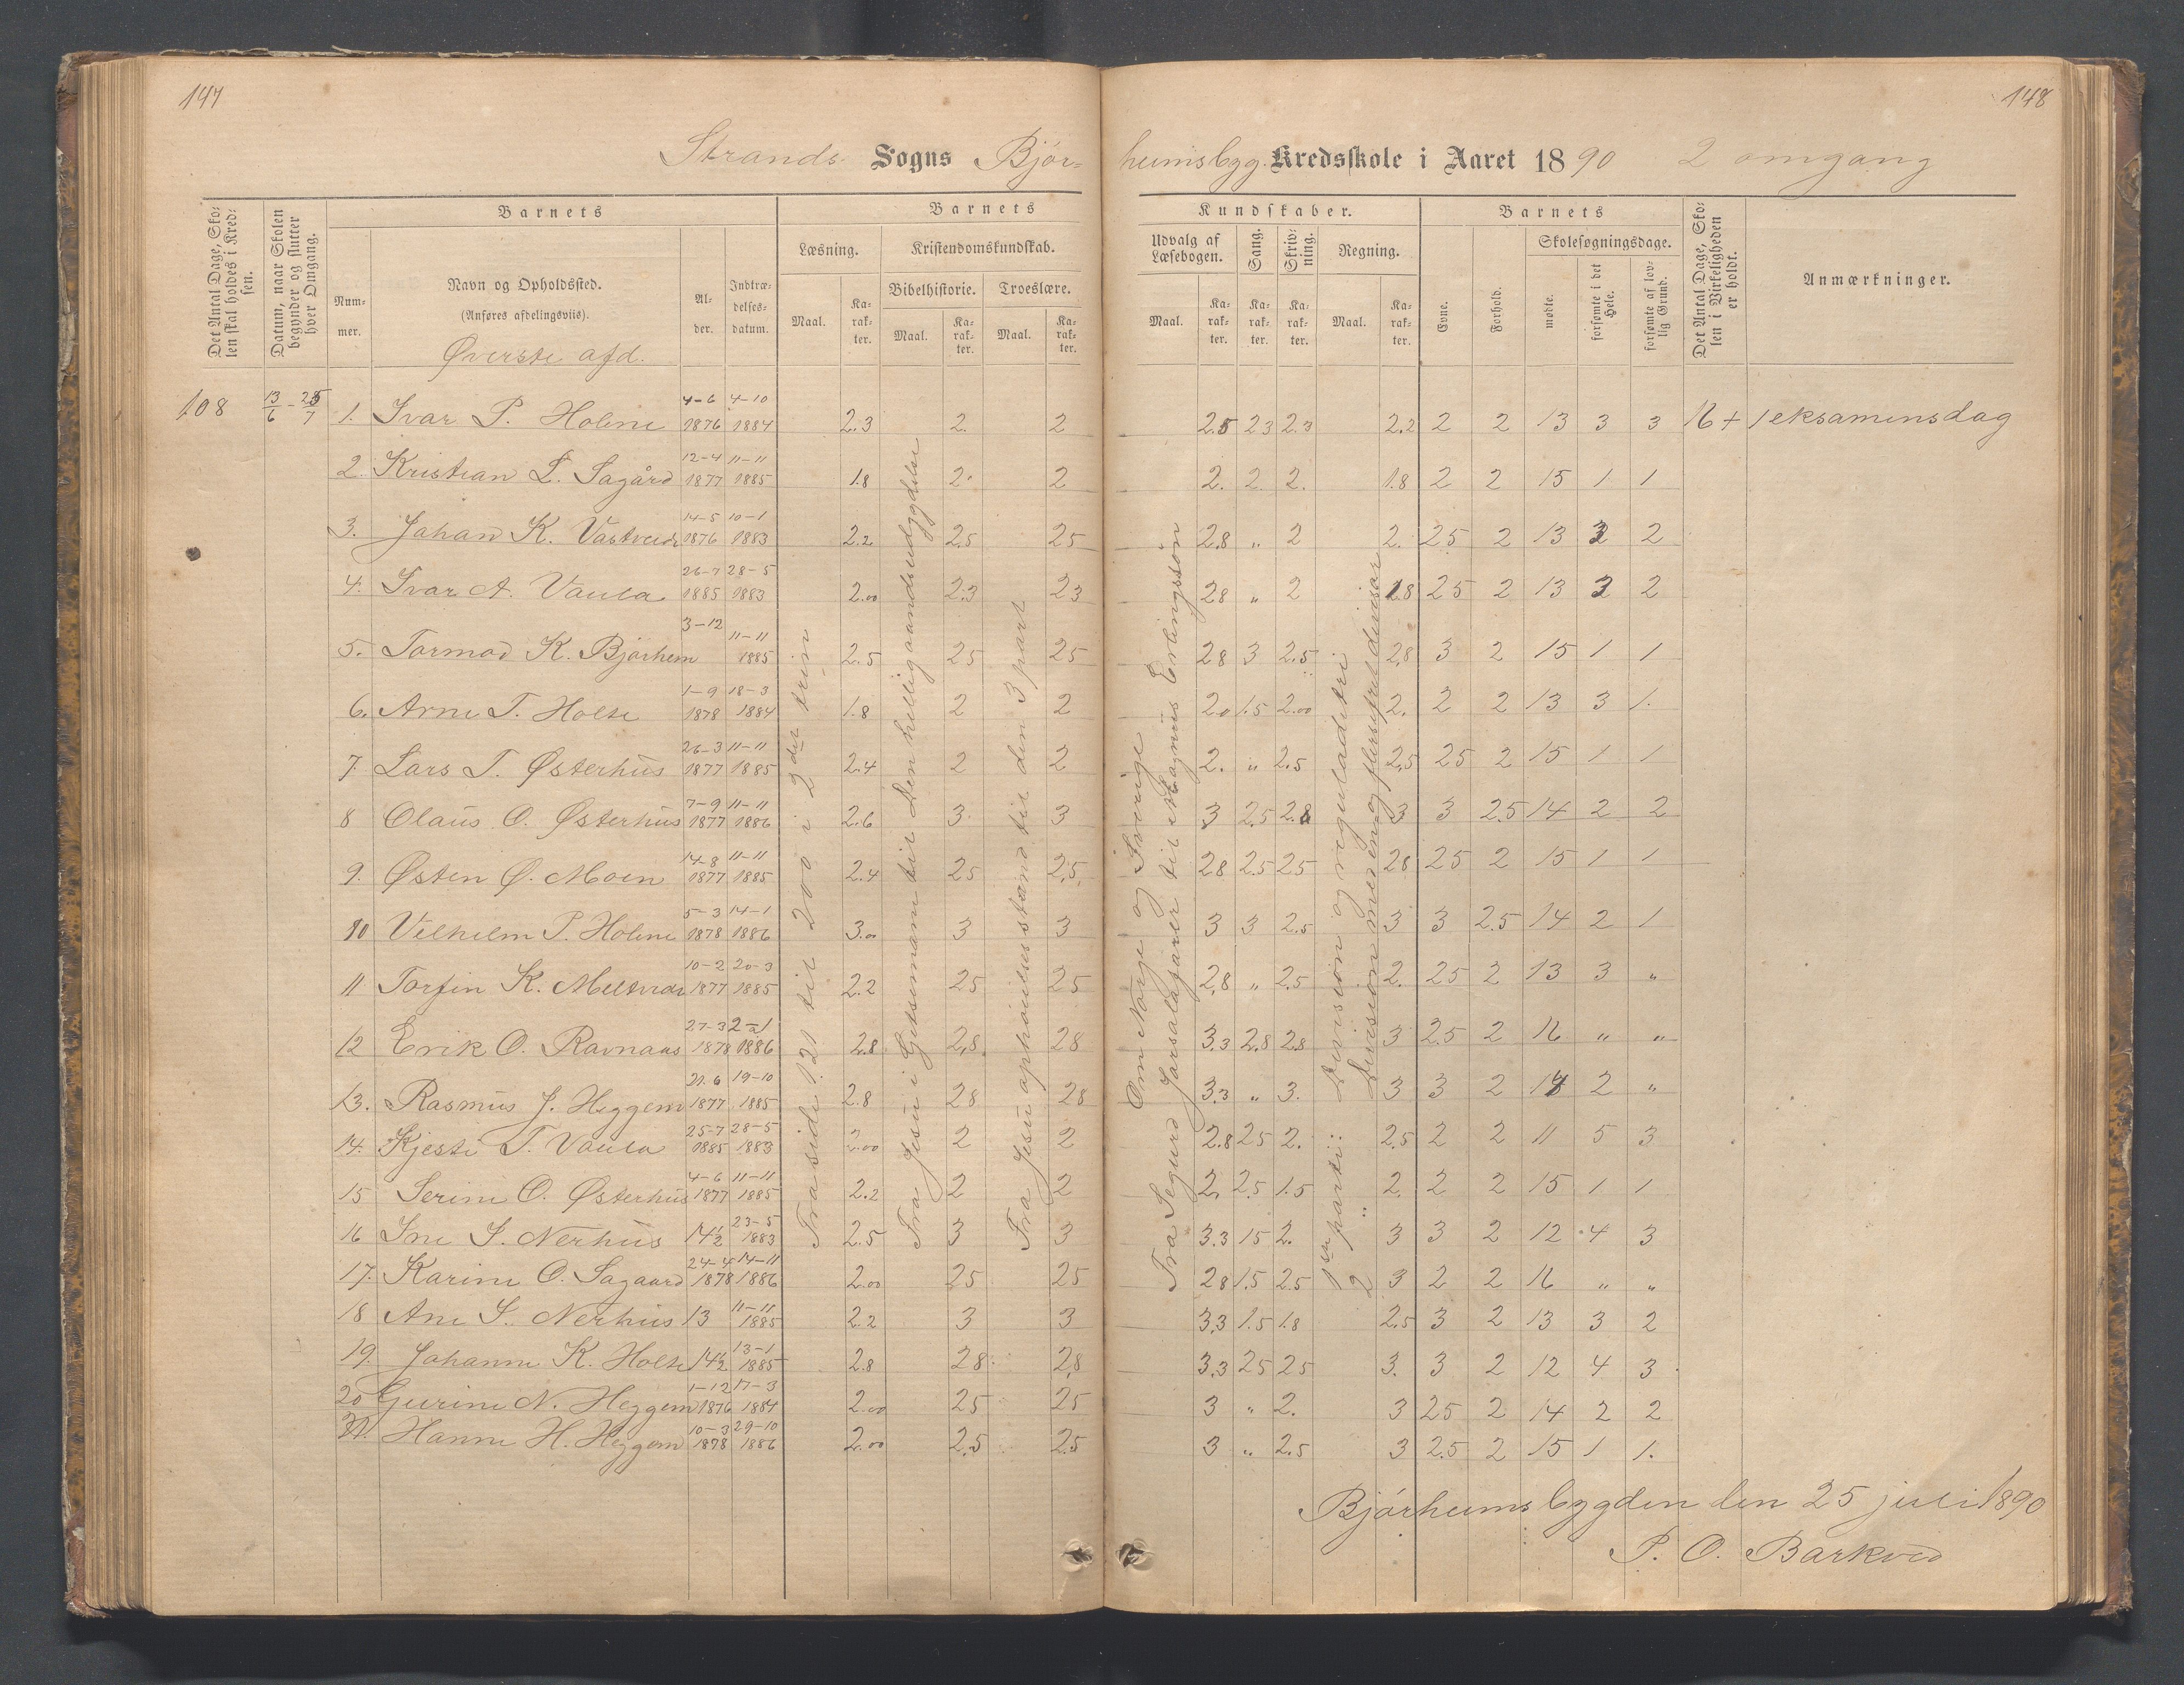 147
148
Strands Sogns Bjór- heimsbyg. Kredsskole i Aaret 1890 2 omgang
Det Antal Dage, Skolen skal holdes i Kredsen.
Datum, naar Skolen begynder og slutter hver Omgang.
Barnets
Nummer.
Navn og Opholdssted.
(Anføres afdelingsviis).
Øverste afd.
Alder.
Indtrædelsesdatum.
Barnets Kundskaber.
Læsning.
Kristendomskundskab.
Bibelhistorie. Troeslære.
Maal. Karakter. Maal. Karakter. Maal. Karakter.
Udvalg af Læsebogen. Sang. Skrivning. Regning.
Maal. Karakter. Karakter. Karakter. Maal. Karakter.
Barnets
Evne. Forhold. Skolesøgningsdage.
mødte. forsømte i det Hele. forsømte af lovlig Grund.
Det Antal Dage, Skolen i Virkeligheden er holdt.
Anmærkninger.
108 13/6 - 25/7 1. Ivar P. Holme 4-6 1876 4-10 1884 2.3 2. 2 2.5 23 2.3 2.2 2 2 13 3 3 16 + 1 eksamensdag
2. Kristian L. Sagård 12-4 1877 11-11 1885 1.8 2. 2 2. 2. 2. 1.8 2 2 15 1 1
3. Johan K. Vastveid 14-5 1876 10-1 1883 2.2 2.5 25 2.8 " 2 2. 25 2 13 3 2
4. Ivar A. Vaula 26-7 1885 28-5 1883 2.00 2.3 23 28 " 2 1.8 25 2 13 3 2
5. Tormod K. Bjørhem 3-12 11-11 1885 2.5 25 25 28 3 2.5 2.8 3 2 15 1 1
6. Arne T. Holte 1-9 1878 18-3 1884 1.8 2 2 2.0 1.5 2.00 2. 2 2 13 3 1.
7. Lars T. Østerhus 26-3 1877 11-11 1885 2.4 2 2 2. " 2.5 2.5 25 2 15 1 1
8 Olaus O. Østerhus 7-9 1877 11-11 1886 2.6 3. 3 3 2.5 2.8 3 3 2.5 14 2 2
9. Østen Ø. Moen 14-8 1877 11-11 1885 2.4 25 2.5 28 2.5 25 28 25 2 15 1 1
10 Vilhelm P. Holme 5-3 1878 14-1 1886 3.00 3 3 3 3 2.5 3 3 2.5 14 2 1
11 Torfin K. Meltveid 10-2 1877 20-3 1885 2.2 25 25 2.8 " 2.5 2. 25 2 13 3 "
12 Erik O. Ravnaas 27-3 1878 2-1 1886 2.8 2.8 28 3.3 2.8 2.8 3 2.5 2 16 " "
13. Rasmus J. Heggem 21.6 1877 19-10 1885 2.8 28 28 3.3 " 3. 3 3 2 14 2 "
14. Kjesti T. Vaula 25-7 1885 28-5 1883 2.00 2 2 2.8 25 2. 2.5 2 2 11 5 3
15 Serine O. Østerhus 4-6 1877 11-11 1885 2.2 2 2 2. 2.5 1.5 2. 2 2 15 1 1
16 Ine S. Nerhus 14½ 23-5 1883 2.5 3 3 3.3 15 2. 3 3 2 12 4 3
17. Karine O. Sagaard 24-4 1878 14-11 1886 2.00 25 25 28 1.5 2.5 3 2 2 16 " "
18 Ane S. Nerhus 13 11-11 1885 2.2 3 3 3.3 1.5 1.8 2.5 3 2 13 3 2
19. Johanne K. Holte 14½ 13-1 1885 2.8 28 2,8 3.3 25 25 3. 3 2 12 4 3
20 Gurine N. Heggem 1-12 1876 17-3 1884 2.00 25 25 3 " 2. 3 25 2 14 2 2
21. Hanne H. Heggem 10-3 1878 29-10 1886 2.00 2.5 2.5 3 " 2.5 3 2.5 2 15 1 1.
Fra side 121 til 200 i 2det trin
Fra Jesu i Getsemane til Den helligaandsudgydelse
Fra Jesu ophøielsesstand til den 3 part
Om Norge og Sverige
Fra Segurd Jorsalafarer til Magnus Erlingssøn
1ste parti: Division og reguladetri
2 " Division med en og flersifret divisor
Bjørheimsbygden den 25 juli 1890
P. O. Barkved